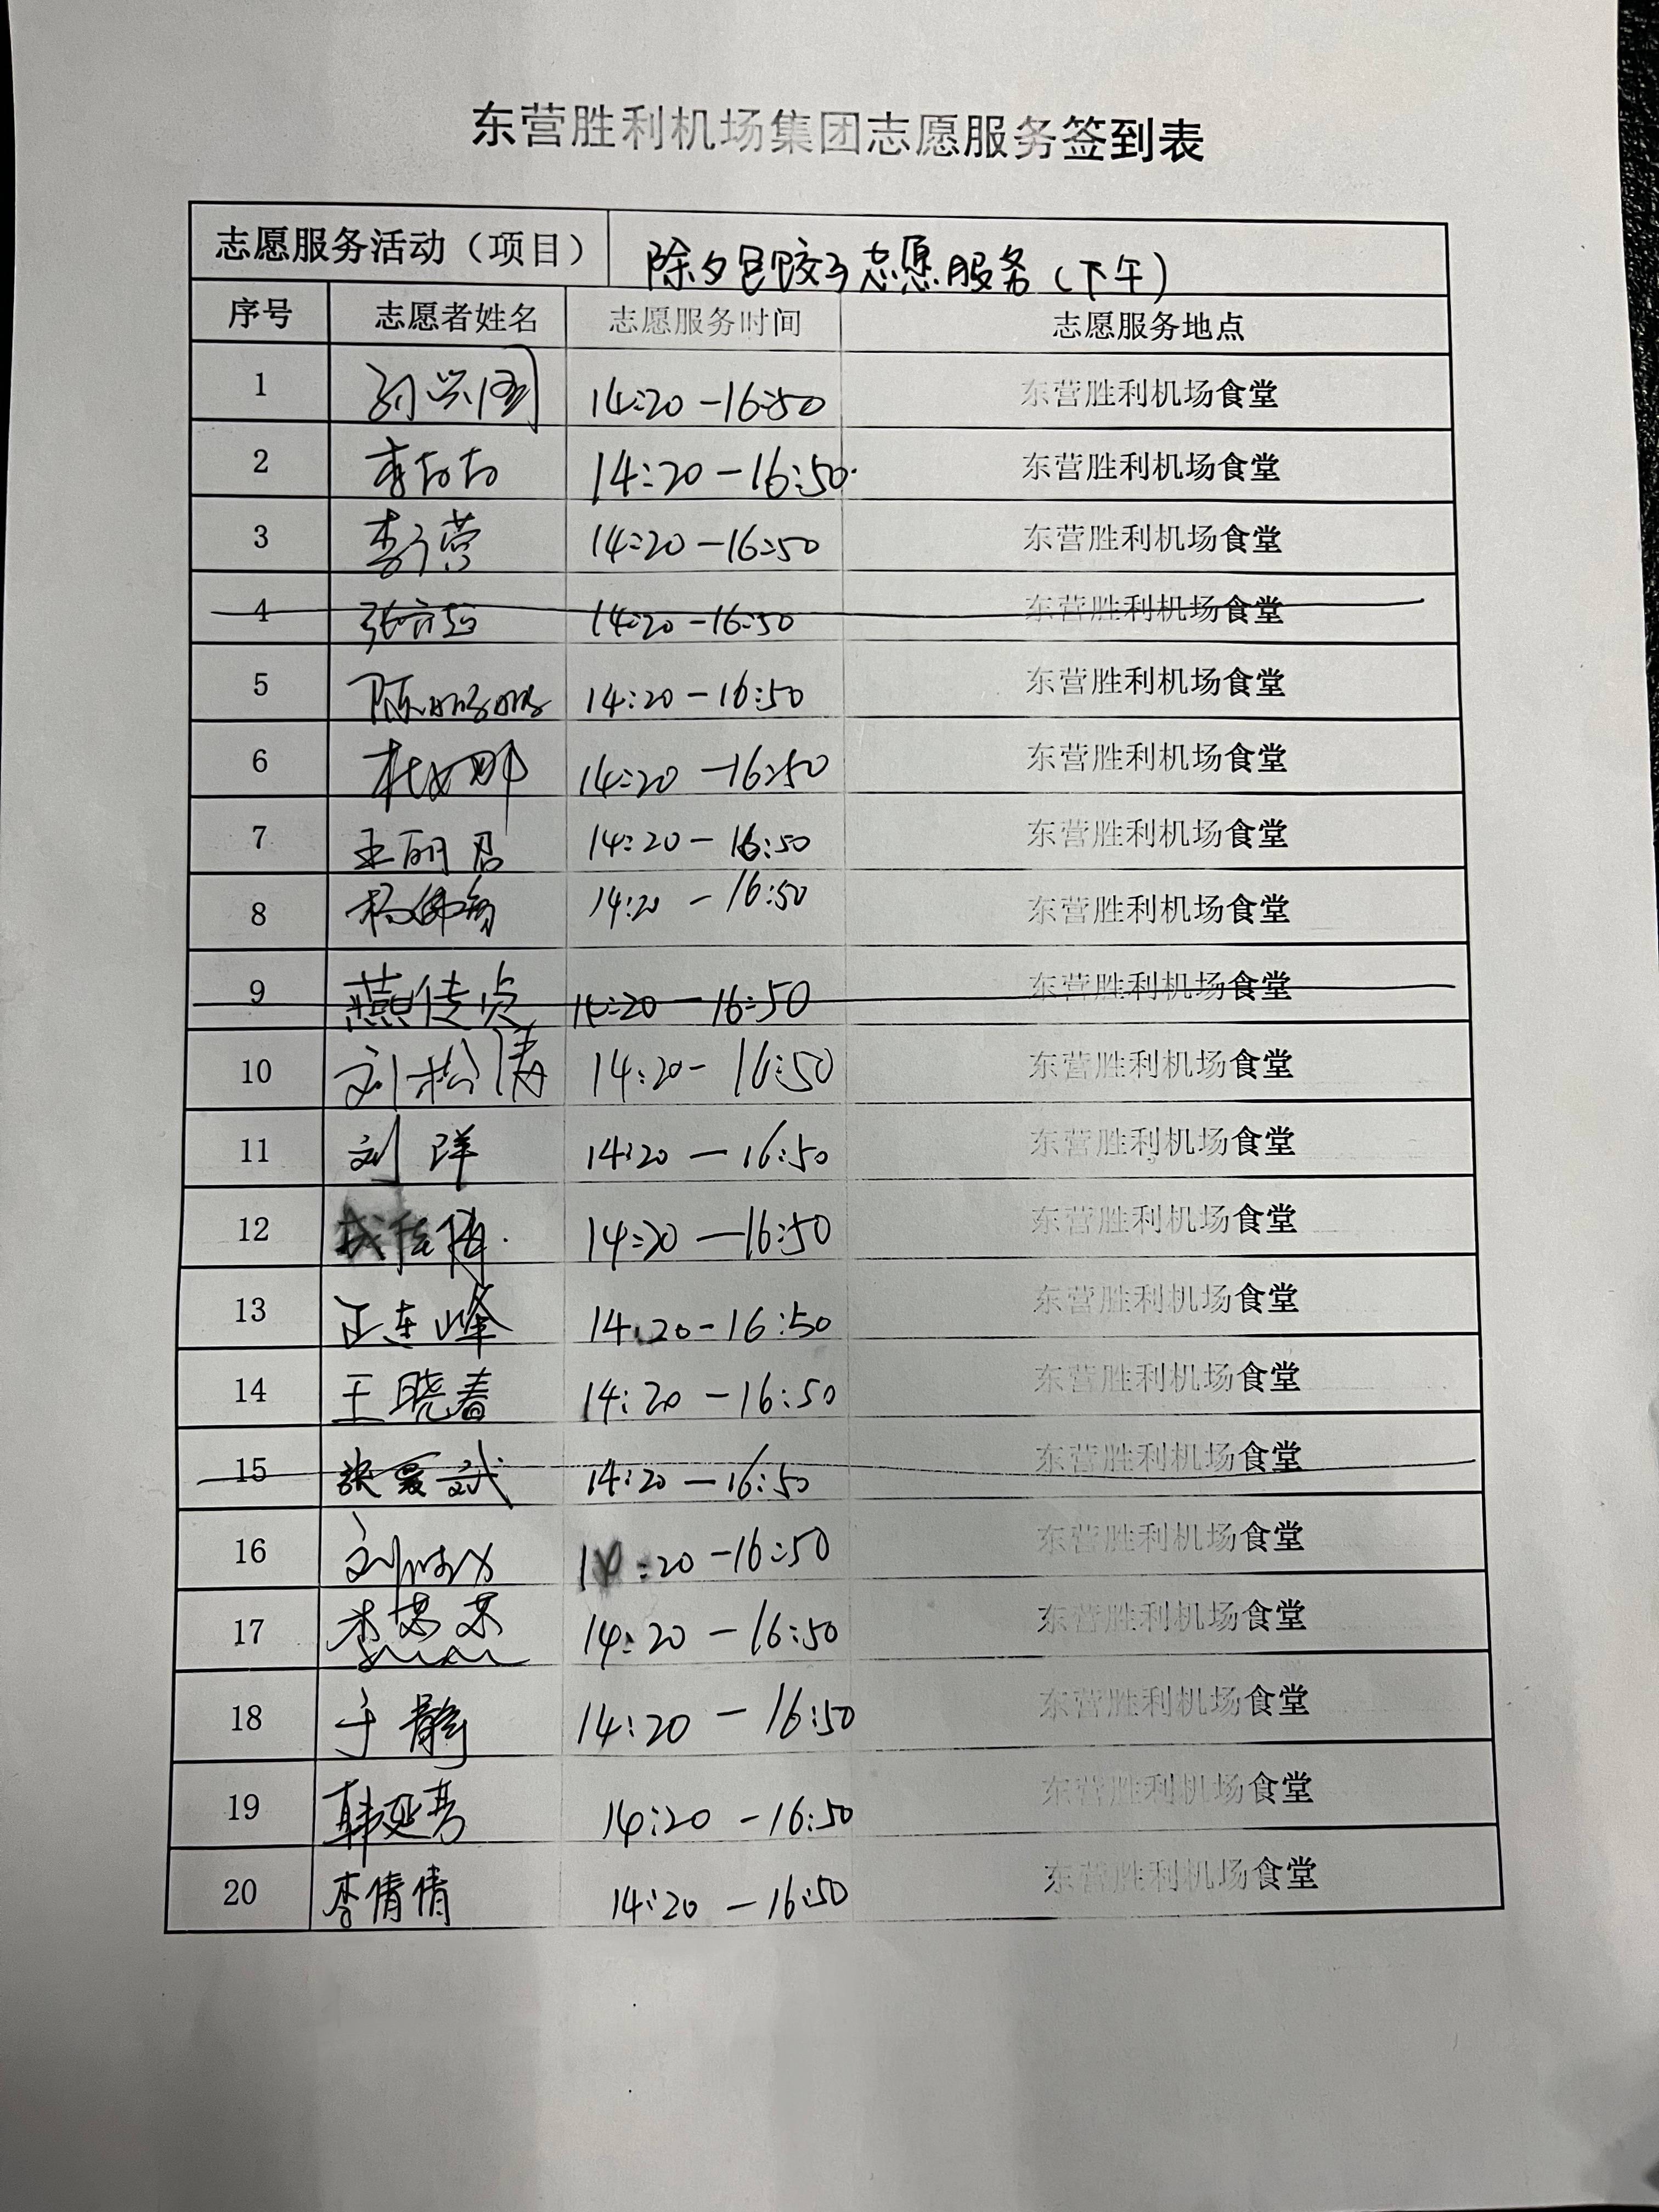 东营胜利机场集团志愿服务签到表
志愿服务活动（项目） 除夕包饺子志愿服务（下午）
序号 志愿者姓名 志愿服务时间 志愿服务地点
1 14:20-16:50 东营胜利机场食堂
2 14:20-16:50 东营胜利机场食堂
3 14:20-16:50 东营胜利机场食堂
4 14:20-16:50 东营胜利机场食堂
5 陈鹏鹏 14:20-16:50 东营胜利机场食堂
6 杜娜 14:20-16:50 东营胜利机场食堂
7 王丽君 14:20-16:50 东营胜利机场食堂
8 14:20-16:50 东营胜利机场食堂
9 燕传贞 14:20-16:50 东营胜利机场食堂
10 刘松涛 14:20-16:50 东营胜利机场食堂
11 刘洋 14:20-16:50 东营胜利机场食堂
12 14:20-16:50 东营胜利机场食堂
13 14:20-16:50 东营胜利机场食堂
14 王晓春 14:20-16:50 东营胜利机场食堂
15 14:20-16:50 东营胜利机场食堂
16 14:20-16:50 东营胜利机场食堂
17 李苏苏 14:20-16:50 东营胜利机场食堂
18 于静 14:20-16:50 东营胜利机场食堂
19 14:20-16:50 东营胜利机场食堂
20 李倩倩 14:20-16:50 东营胜利机场食堂